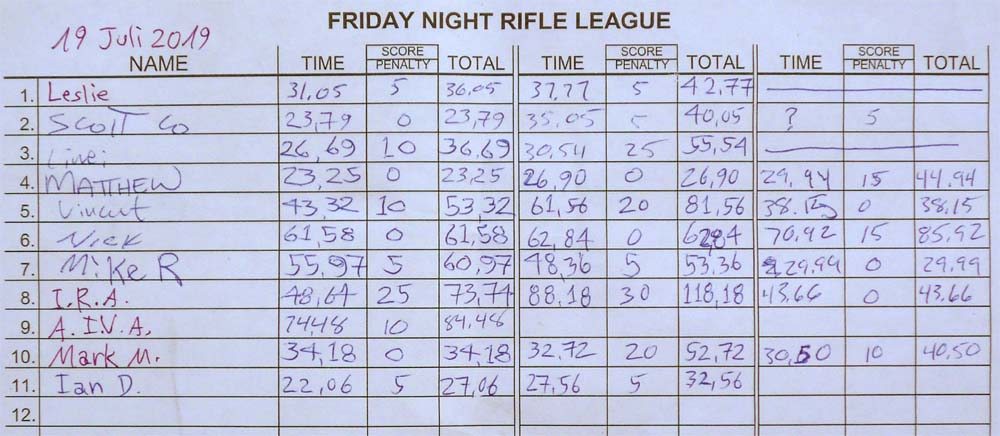 FRIDAY NIGHT RIFLE LEAGUE
19 Juli 2019
NAME TIME SCORE PENALTY TOTAL TIME SCORE PENALTY TOTAL TIME SCORE PENALTY TOTAL
1. Leslie 31,05 5 36,05 37,77 5 42,77
2. SCOTT Co 23,79 0 23,79 35,05 5 40,05 ? 5
3. 26,69 10 36,69 30,54 25 55,54
4. MATTHEW 23,25 0 23,25 26,90 0 26,90 29,94 15 44,94
5. Vincent 43,32 10 53,32 61,56 20 81,56 38.15 0 38,15
6. Nick 61,58 0 61,58 62,84 0 6284 70,92 15 85,92
7. Mike R 55,97 5 60,97 48,36 5 53,36 29,99 0 29,99
8. I.R.A. 48,64 25 73,74 88,18 30 118,18 43,66 0 43,66
9. A.I.V.A. 74,48 10 84,48
10. Mark M. 34,18 0 34,18 32,72 20 52,72 30,50 10 40,50
11. Ian D. 22,06 5 27,06 27,56 5 32,56
12.